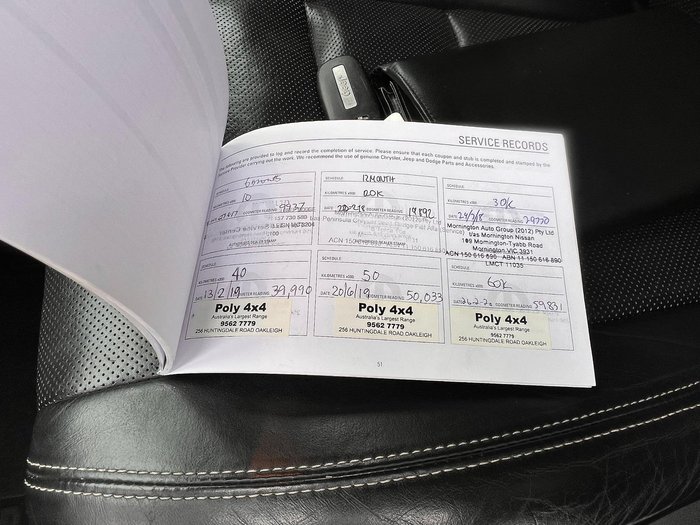 SERVICE RECORDS
The following are provided to log and record the completion of service. Please ensure that each coupon and stub is completed and stamped by the
Service Provider carrying out the work. We recommend the use of genuine Chrysler, Jeep and Dodge Parts and Accessories.
SCHEDULE
KILOMETRES x000 10
ODOMETER READING 9937
SCHEDULE 12 MONTH
KILOMETRES x000 20K
DATE ODOMETER READING 19892
SCHEDULE
KILOMETRES x000 30K
DATE 29/8/18 ODOMETER READING 29770
Mornington Auto Group (2012) Pty Ltd
t/as Mornington Nissan
109 Mornington-Tyabb Road
Mornington VIC 3931
ACN 150 616 890 ABN 11 150 616 890
LMCT 11035
SCHEDULE 40
KILOMETRES x000
DATE 13/2/19 ODOMETER READING 39,990
Poly 4x4
Australia's Largest Range
9562 7779
256 HUNTINGDALE ROAD OAKLEIGH
SCHEDULE 50
KILOMETRES x000
DATE 20/6/19 ODOMETER READING 50,033
Poly 4x4
Australia's Largest Range
9562 7779
256 HUNTINGDALE ROAD OAKLEIGH
SCHEDULE
KILOMETRES x000 60K
DATE ODOMETER READING 59,831
Poly 4x4
Australia's Largest Range
9562 7779
256 HUNTINGDALE ROAD OAKLEIGH
51